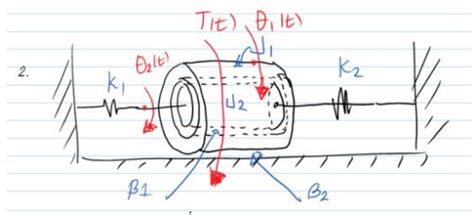 T(t) θ1(t)
J1
2.
θ2(t)
K1
K2
J2
β1
B2